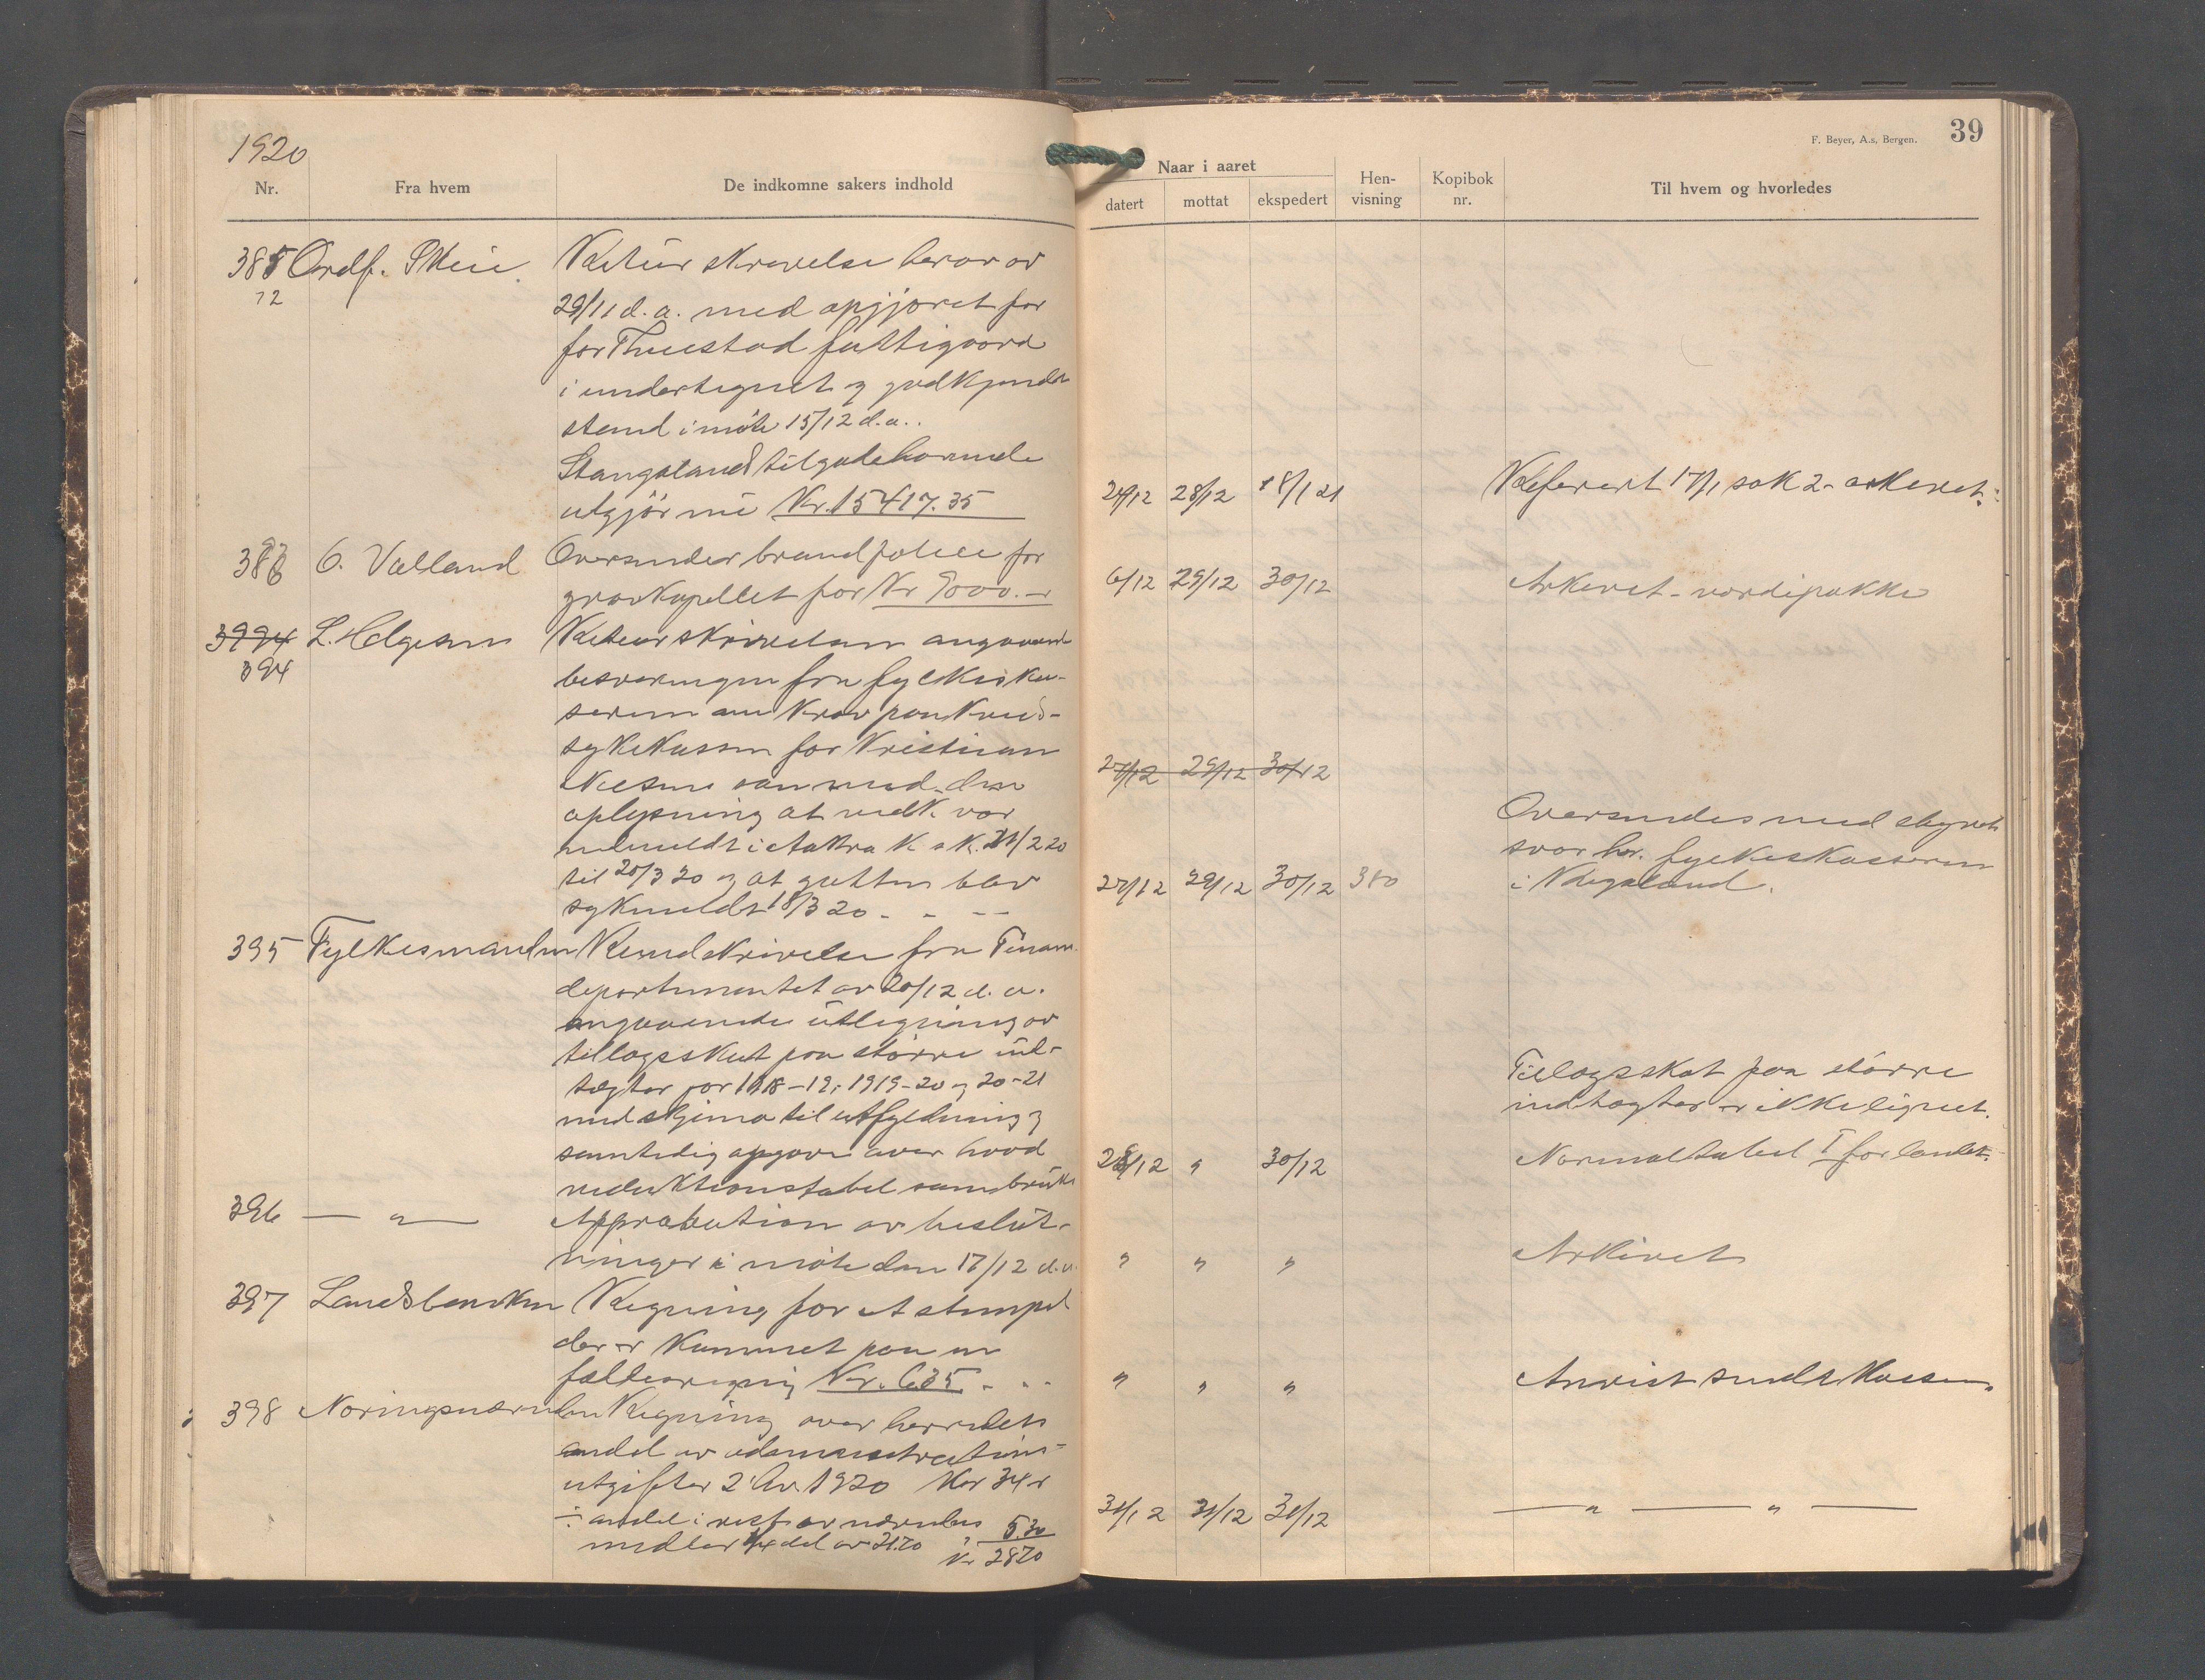 1920
Nr.
Fra hvem
De indkomne sakers indhold
Naar i aaret
datert
mottat
ekspedert
Hen-
visning
Kopibok
nr.
Til hvem og hvorledes
F. Beyer, A.s. Bergen.
39
385 Ordf. Skeie Retur skrivelse herav av
29/11 d.a. med opgjöret for
for Thuestad fattigaard
i undertegnet og godkjendt
stand i möte 15/12 d.a..
Stangeland tilgodehavende
utgjör nu Kr. 15417.35
28/12 18/1 21 Referert 17/1 sak 2 - arkivet.
O. Valland Oversender brandpolice for
gravkapellet for Kr 9000.-
6/12 29/12 30/12 Arkivet - verdipakke
3994 L. Helgesen Retur skrivelsen angaaende
394 besvaringen fra fylkeska-
sereren om krav paa Kreds-
sykekassen for Kristian
Nilsen san med den
oplysning at vedk. var
27/12 29/12 30/12
indmeldt i Aakra K s K. 21/2 20
til 20/3 20 og at gutten blev
sykmeldt 18/3 20 - - --
27/12 29/12 30/12 380
Oversendes med styrets
svar hr. fylkeskassereren
i Rogaland.
395 Fylkesmanden Rundskrivelse fra Finans.
departementet av 20/12 d.a.
angaaende utligning av
tillægsskat paa större ind-
tægter for 1918-19, 1919-20 og 20-21
med skjema til utfyldning og
samtidig opgave over hvad
reduktionstabel som brukes
28/12 " 30/12
Tillægsskat paa större
indtægter er ikke lignet.
Normaltabel I for landet.
396 — " — Approbation av beslut-
ninger i möte den 17/12 d.a.
" " " Arkivet
397 Landsbanken Regning for et stempel
der er kommet paa en
fælles regning Kr. 6.35 - - -
" " " Anvist sendt kassen
398 Næringsnævnden Regning over herredets
andel av administrations-
utgifter 2 kv. 1920 Kr 34 -
÷ andel i ref av nævndes 5.30
medlem 1/4 del av 21.20 Kr 28.70
31/12 31/12 31/12 — " — " —